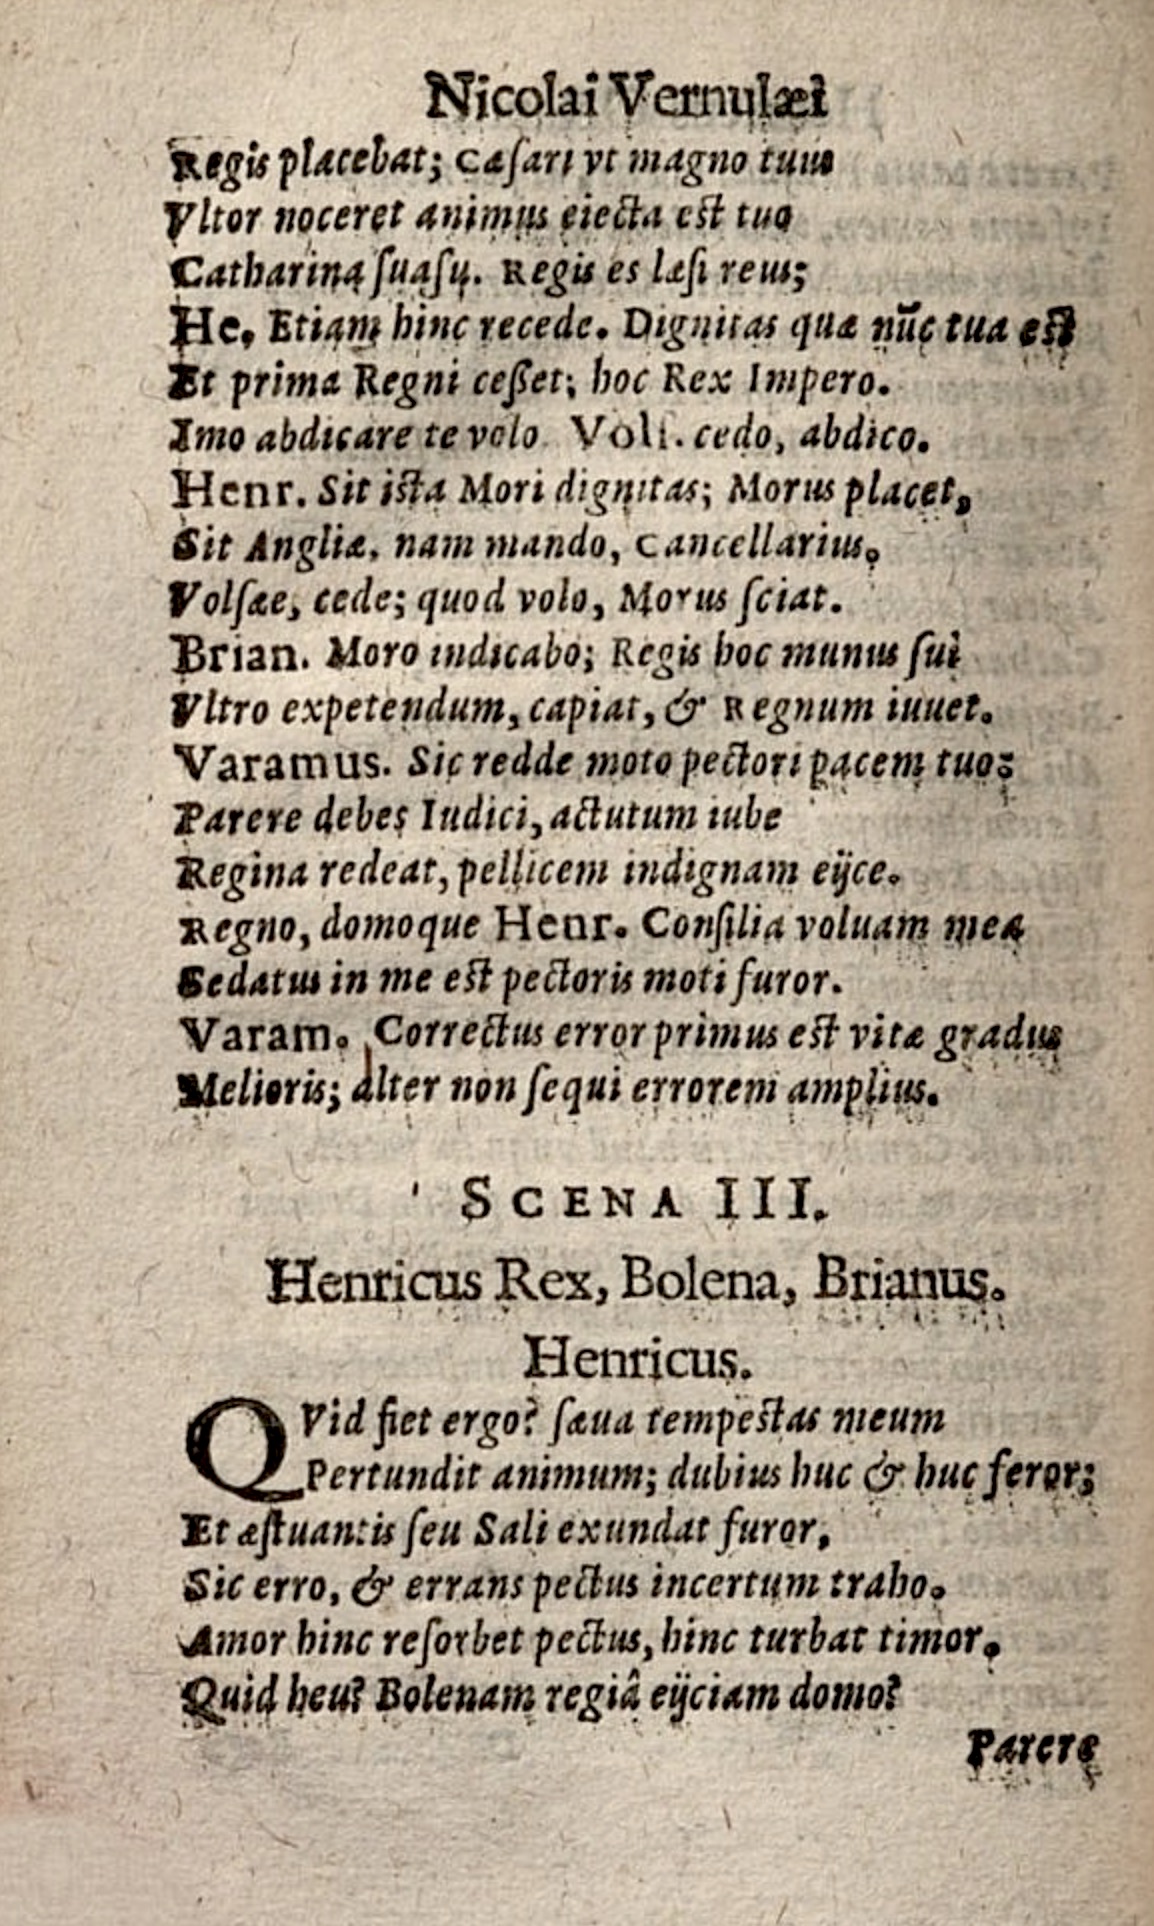 Nicolai Vernulæi
Regis placebat; Cæſari vt magno tuus
Vltor noceret animus eiecta est tuo
Catharina ſuaſu. Regis es læſi reus;
He. Etiam hinc recede. Dignitas quæ nūc tua est
Et prima Regni ceßet; hoc Rex Impero.
Imo abdicare te volo. Volſ. cedo, abdico.
Henr. Sit ista Mori dignitas; Morus placet,
Sit Angliæ, nam mando, Cancellarius.
Volſæe, cede; quod volo, Morus ſciat.
Brian. Moro indicabo; Regis hoc munus ſui
Vltro expetendum, capiat, & Regnum iuuet.
Varamus. Sic redde moto pectori pacem tuo;
Parere debes Iudici, actutum iube
Regina redeat, pellicem indignam eijce.
Regno, domoque Henr. Conſilia voluam mea
Sedatus in me est pectoris moti furor.
Varam. Correctus error primus est vitæ gradus
Melioris; alter non ſequi errorem amplius.
SCENA III.
Henricus Rex, Bolena, Brianus.
Henricus.
QVid fiet ergo? ſæua tempestas meum
Pertundit animum; dubius huc & huc feror;
Et æſtuantis ſeu Sali exundat furor,
Sic erro, & errans pectus incertum traho.
Amor hinc reſorbet pectus, hinc turbat timor.
Quid heu? Bolenam regiâ eijciam domo?
Parere